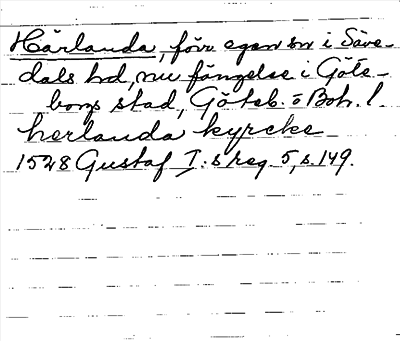 Härlanda, förr egen sn i Säve-
dals hd, nu fängelse i Göte-
borgs stad, Göteb. o Boh. l.
herlanda kyrcke
1528 Gustaf I:s reg. 5, s. 149.